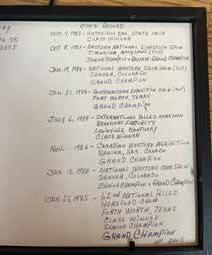 SHOW RECORD
SEPT. 9, 1983 - HUTCHISON KAN. STATE FAIR
CLASS WINNER
OCT. 8, 1983 - EASTERN NATIONAL LIVESTOCK SHOW
TIMONIUM, MARYLAND
JUNIOR CHAMPION - RESERVE GRAND CHAMPION
JAN. 14, 1984 - NATIONAL WESTERN STOCK SHOW
DENVER, COLORADO
GRAND CHAMPION
JAN. 31, 1984 - SOUTHWESTERN EXPOSITION SHOW
FORT WORTH, TEXAS
GRAND CHAMPION
JULY 6, 1984 - INTERNATIONAL POLLED HEREFORD
FUTURITY
LOUISVILLE, KENTUCKY
CLASS WINNER
NOV. 1984 - CANADIAN WESTERN AGRIBITION
REGINA, SAK. CANADA
GRAND CHAMPION
JAN. 15, 1985 - NATIONAL WESTERN STOCK SHOW
DENVER, COLORADO
SENIOR CHAMPION - GRAND CHAMPION
JAN. 25, 1985 - 62ND NATIONAL POLLED
HEREFORD SHOW
FORTH WORTH, TEXAS
CLASS WINNER
SENIOR CHAMPION
GRAND CHAMPION